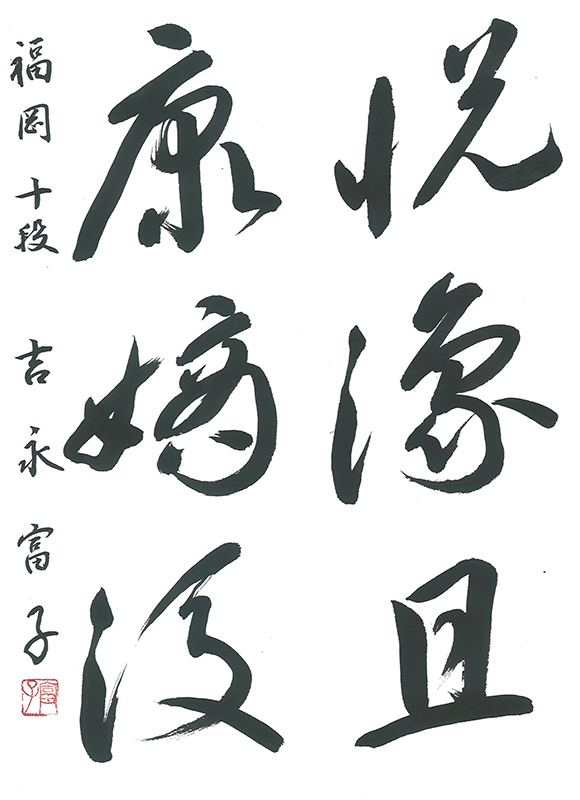 悦豫且
康嫡後
福岡 十段 吉永富子
富子